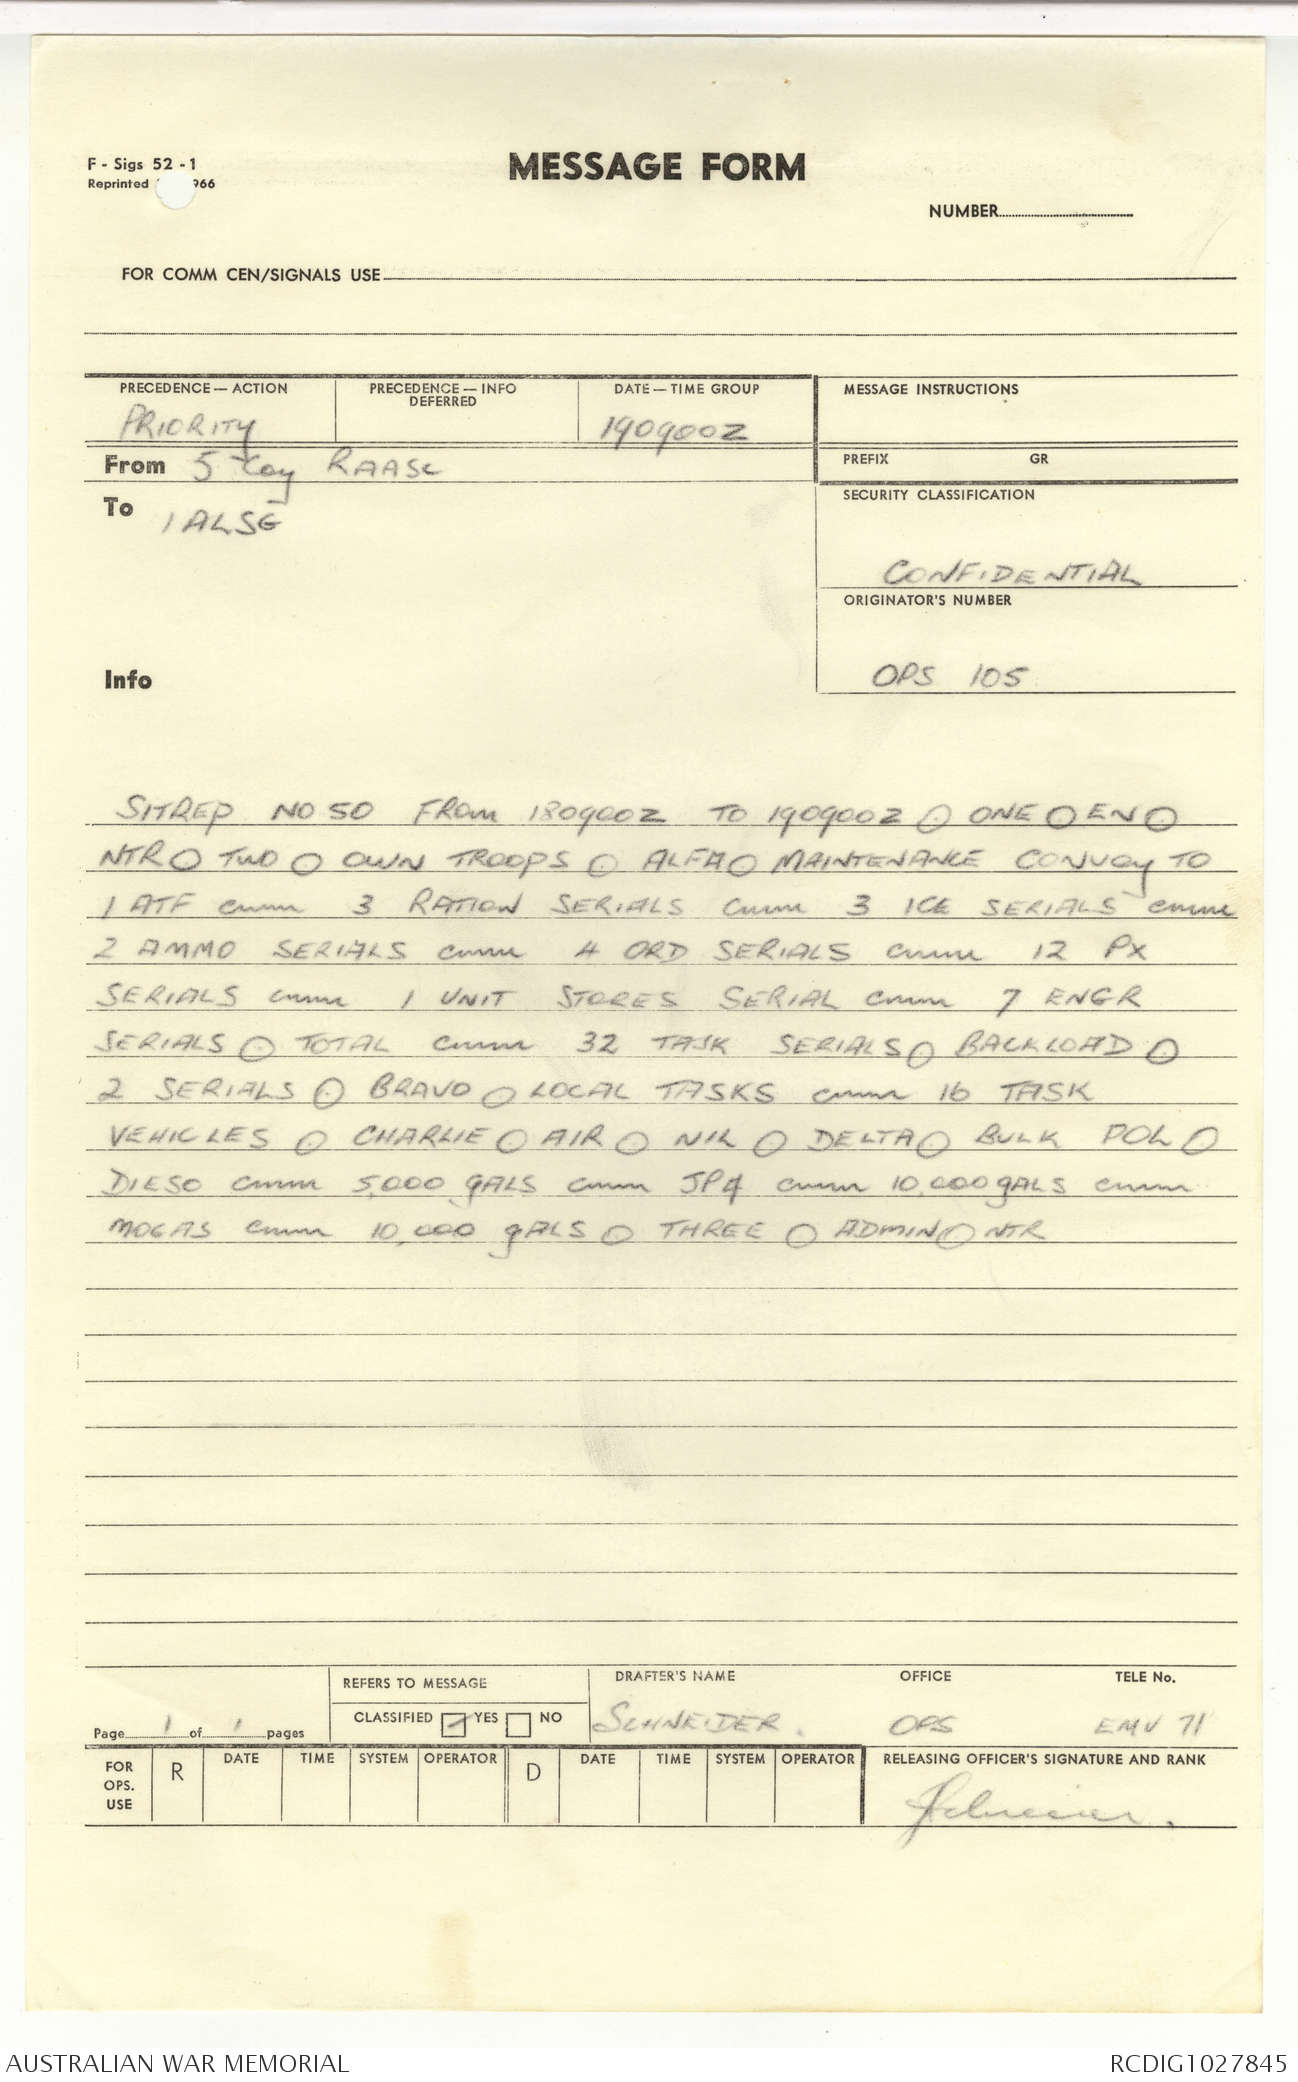 F - Sigs 52 - 1
Reprinted 966
MESSAGE FORM
NUMBER
FOR COMM CEN/SIGNALS USE
PRECEDENCE — ACTION
PRIORITY
PRECEDENCE — INFO
DEFERRED
DATE — TIME GROUP
190900Z
MESSAGE INSTRUCTIONS
From 5 Coy RAASC
PREFIX GR
To 1 ALSG
SECURITY CLASSIFICATION
CONFIDENTIAL
ORIGINATOR'S NUMBER
OPS 105
Info
SITREP NO 50 FROM 180900Z TO 190900Z ⊙ ONE ⊙ EN ⊙
NTR ⊙ TWO ⊙ OWN TROOPS ⊙ ALFA ⊙ MAINTENANCE CONVOY TO
1 ATF cmm 3 RATION SERIALS cmm 3 ICE SERIALS cmm
2 AMMO SERIALS cmm 4 ORD SERIALS cmm 12 PX
SERIALS cmm 1 UNIT STORES SERIAL cmm 7 ENGR
SERIALS ⊙ TOTAL cmm 32 TASK SERIALS ⊙ BACKLOAD ⊙
2 SERIALS ⊙ BRAVO ⊙ LOCAL TASKS cmm 16 TASK
VEHICLES ⊙ CHARLIE ⊙ AIR ⊙ NIL ⊙ DELTA ⊙ BULK POL ⊙
DIESO cmm 5,000 gALS cmm JP4 cmm 10,000 gALS cmm
MOGAS cmm 10,000 gALS ⊙ THREE ⊙ ADMIN ⊙ NTR
Page 1 of 1 pages
REFERS TO MESSAGE
CLASSIFIED YES NO
DRAFTER'S NAME
SCHNEIDER.
OFFICE
OPS
TELE No.
EMU 71
FOR OPS. USE
R DATE TIME SYSTEM OPERATOR
D DATE TIME SYSTEM OPERATOR
RELEASING OFFICER'S SIGNATURE AND RANK
AUSTRALIAN WAR MEMORIAL
RCDIG1027845